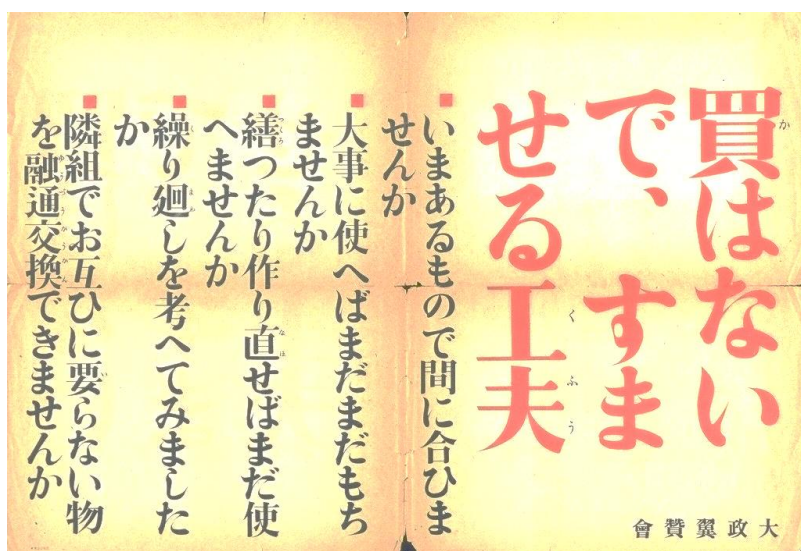 買はない
で、すま
せる工夫
いまあるもので間に合ひま
せんか
大事に使へばまだまだもち
ませんか
繕つたり作り直せばまだ使
へませんか
繰り廻しを考へてみました
か
隣組でお互ひに要らない物
を融通交換できませんか
大政翼賛會